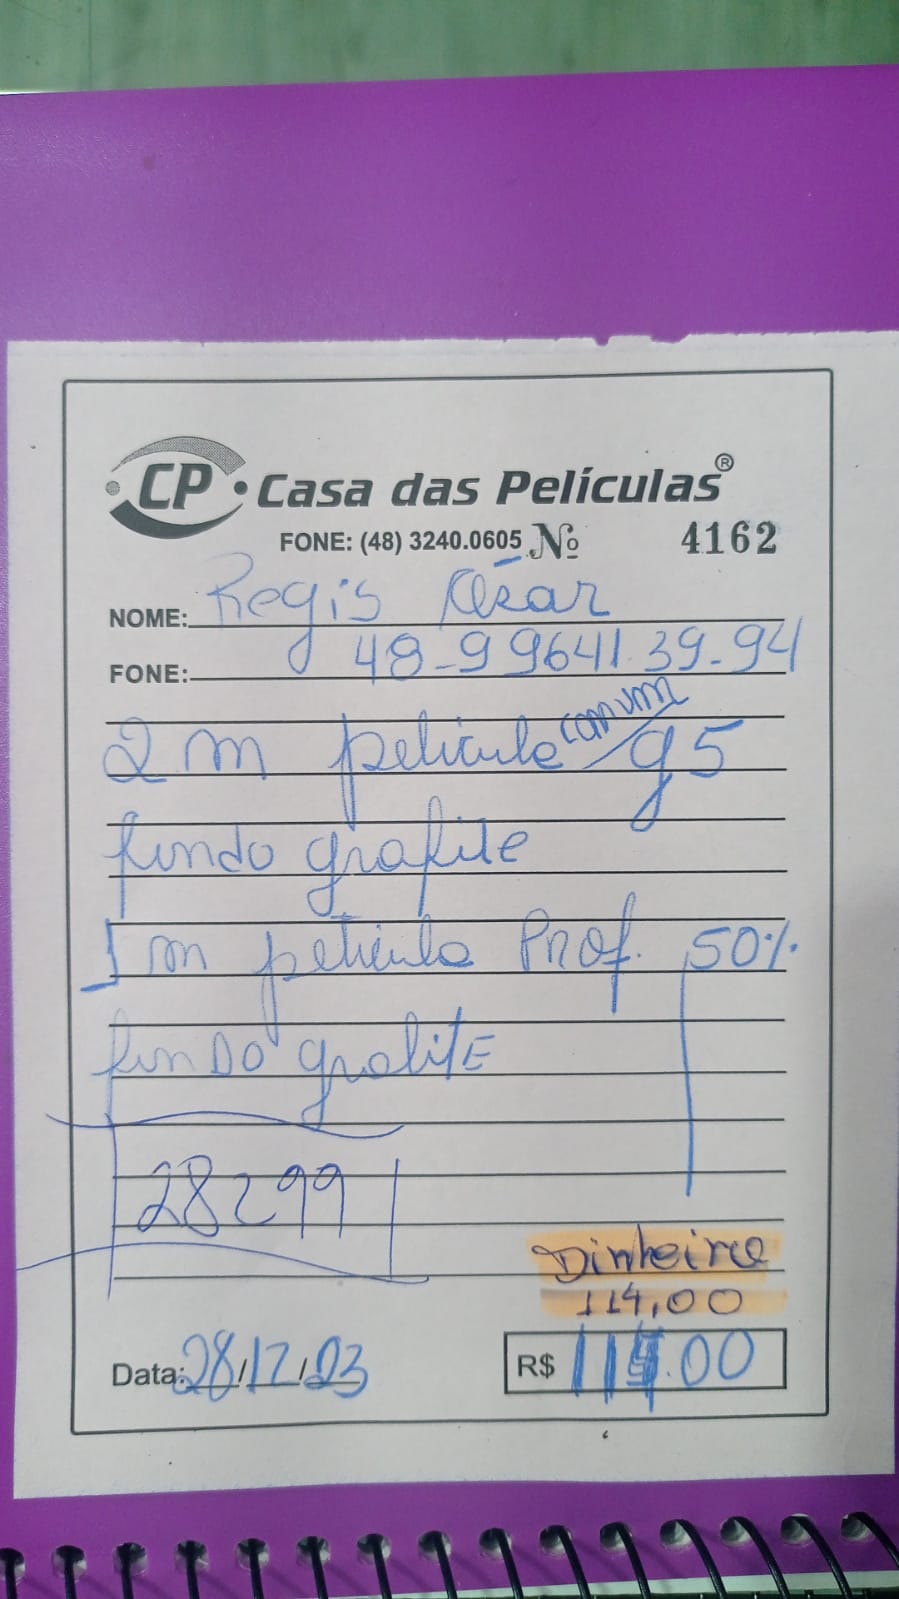 CP Casa das Películas®
FONE: (48) 3240.0605 Nº 4162
NOME: Regis César
FONE: 48-99641.39-94
2m película comum g5
fundo grafite
1m película Prof. 50%
fundo grafite
28299
Dinheiro
114,00
Data: 28/12/23 R$ 114.00